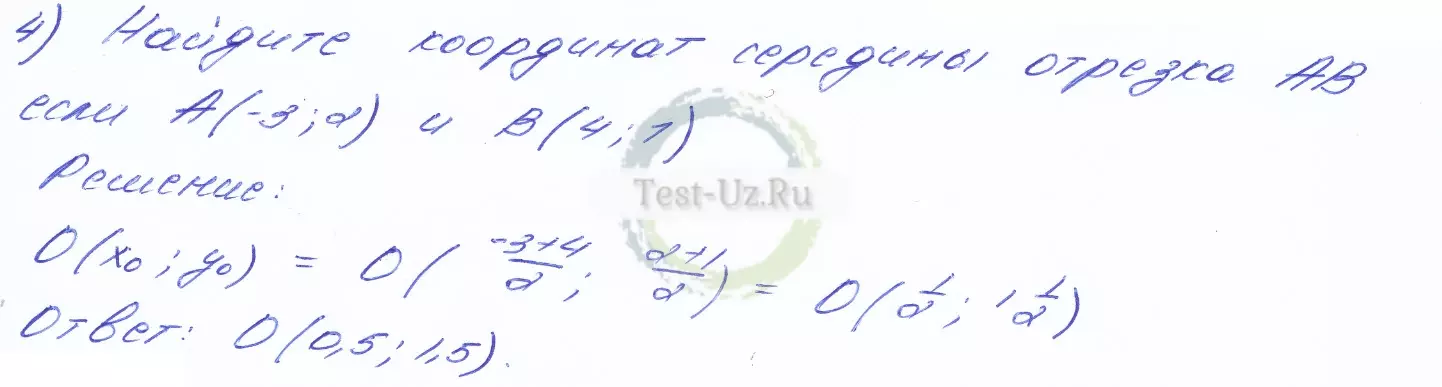 4) Найдите координат середины отрезка AB
если A(-3;2) и B(4;1)
Test-Uz.Ru
Решение:
O(x₀; y₀) = O(-3+4/2; 2+1/2) = O(1/2; 1 1/2)
Ответ: O(0,5; 1,5).